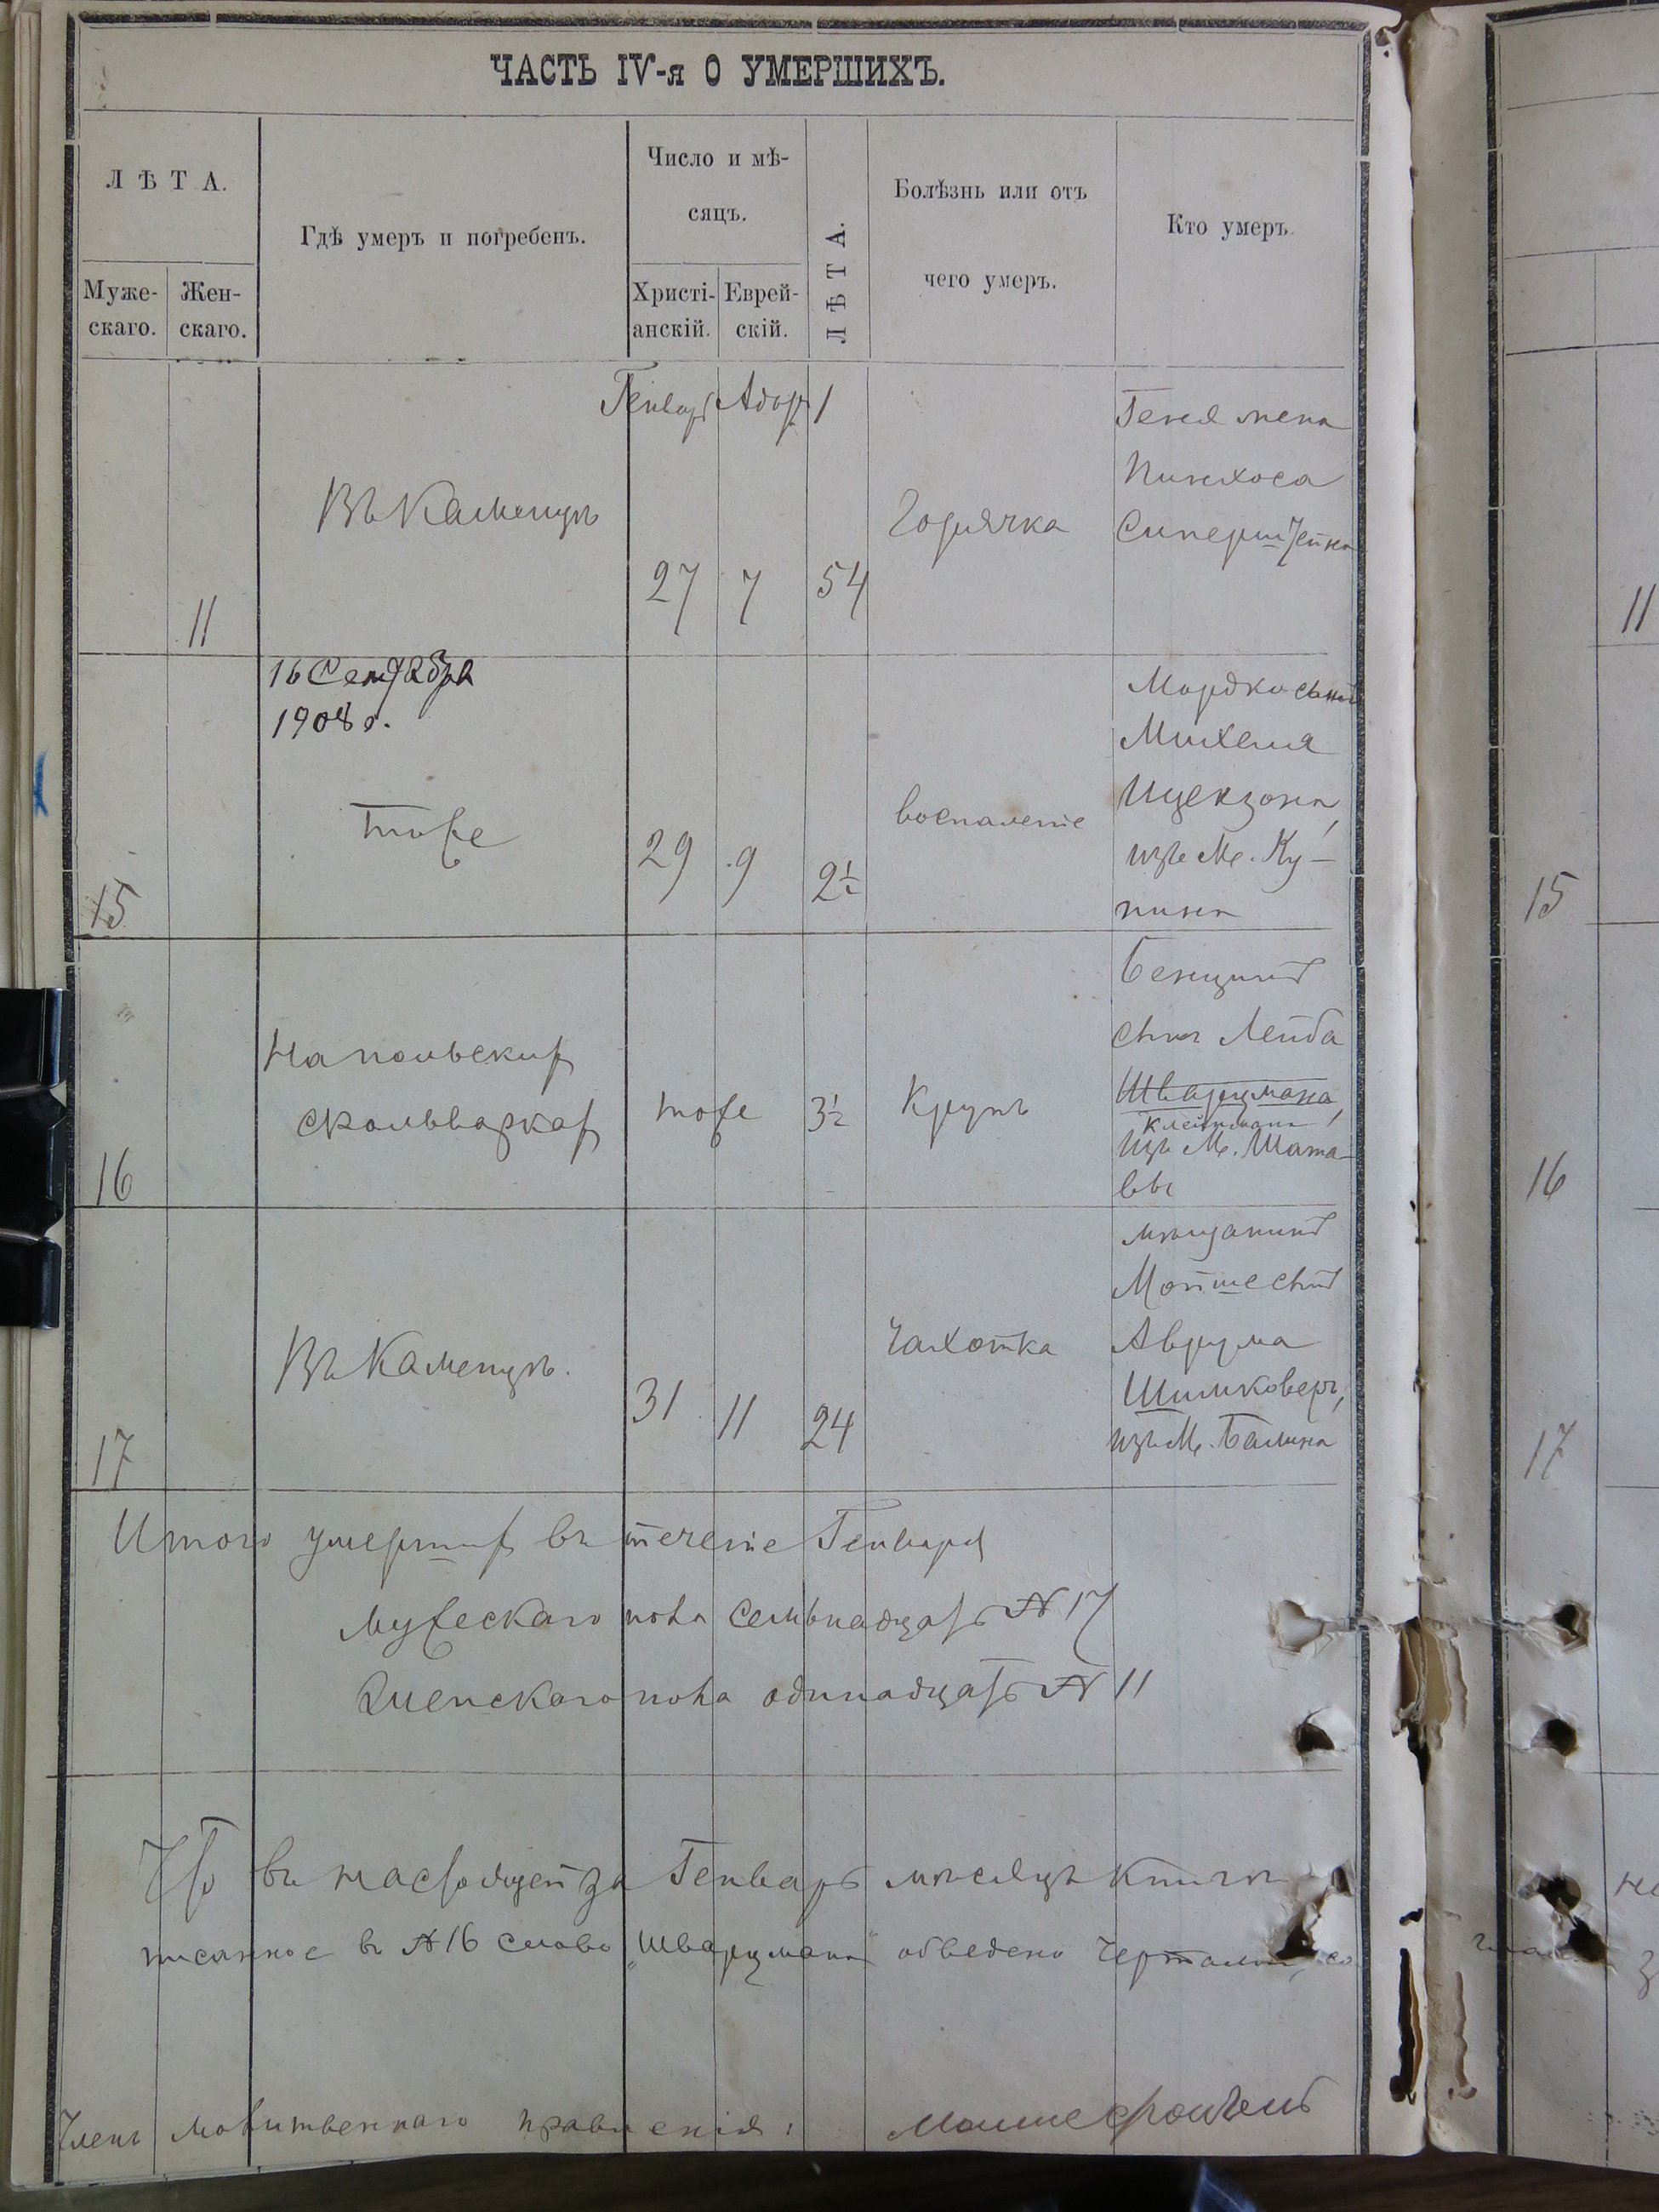 ЧАСТЬ IV-я О УМЕРШИХЪ.
ЛѢТА.
Муже-
скаго.
Жен-
скаго.
Гдѣ умеръ и погребенъ.
Число и мѣ-
сяцъ.
Христі-
анскій.
Еврей-
скій.
ЛѢТА.
Болѣзнь или отъ
чего умеръ.
Кто умеръ.
Генварь Адаръ 1
11
Въ Каменцѣ
27 7 54
Горячка
Геня жена
Пинхоса
16 Сентября
1908 г.
15
тоже
29 9 2½
воспаленіе
Мордко сынъ
Михеля
Ицекзона,
изъ м. Ку-
пина
16
На польскихъ
фольваркахъ
тоже 3½
Крупъ
Бенционъ
сынъ Лейба
Шварцмана,
Клейнмана
изъ м. Шата-
вы
17
Въ Каменцѣ.
31 11 24
Чахотка
мѣщанинъ
Мойше сынъ
Аврума
Шимковеръ,
изъ м. Балина
Итого умершихъ въ теченіе Генваря
мужескаго пола семьнадцать № 17
женскаго пола одинадцать № 11
Что въ настоящей за Генварь мѣсяцъ книги
писанное въ № 16 слово „Шварцмана“ обведено чертами,
Членъ молитвенного правленія:
11
15
16
17